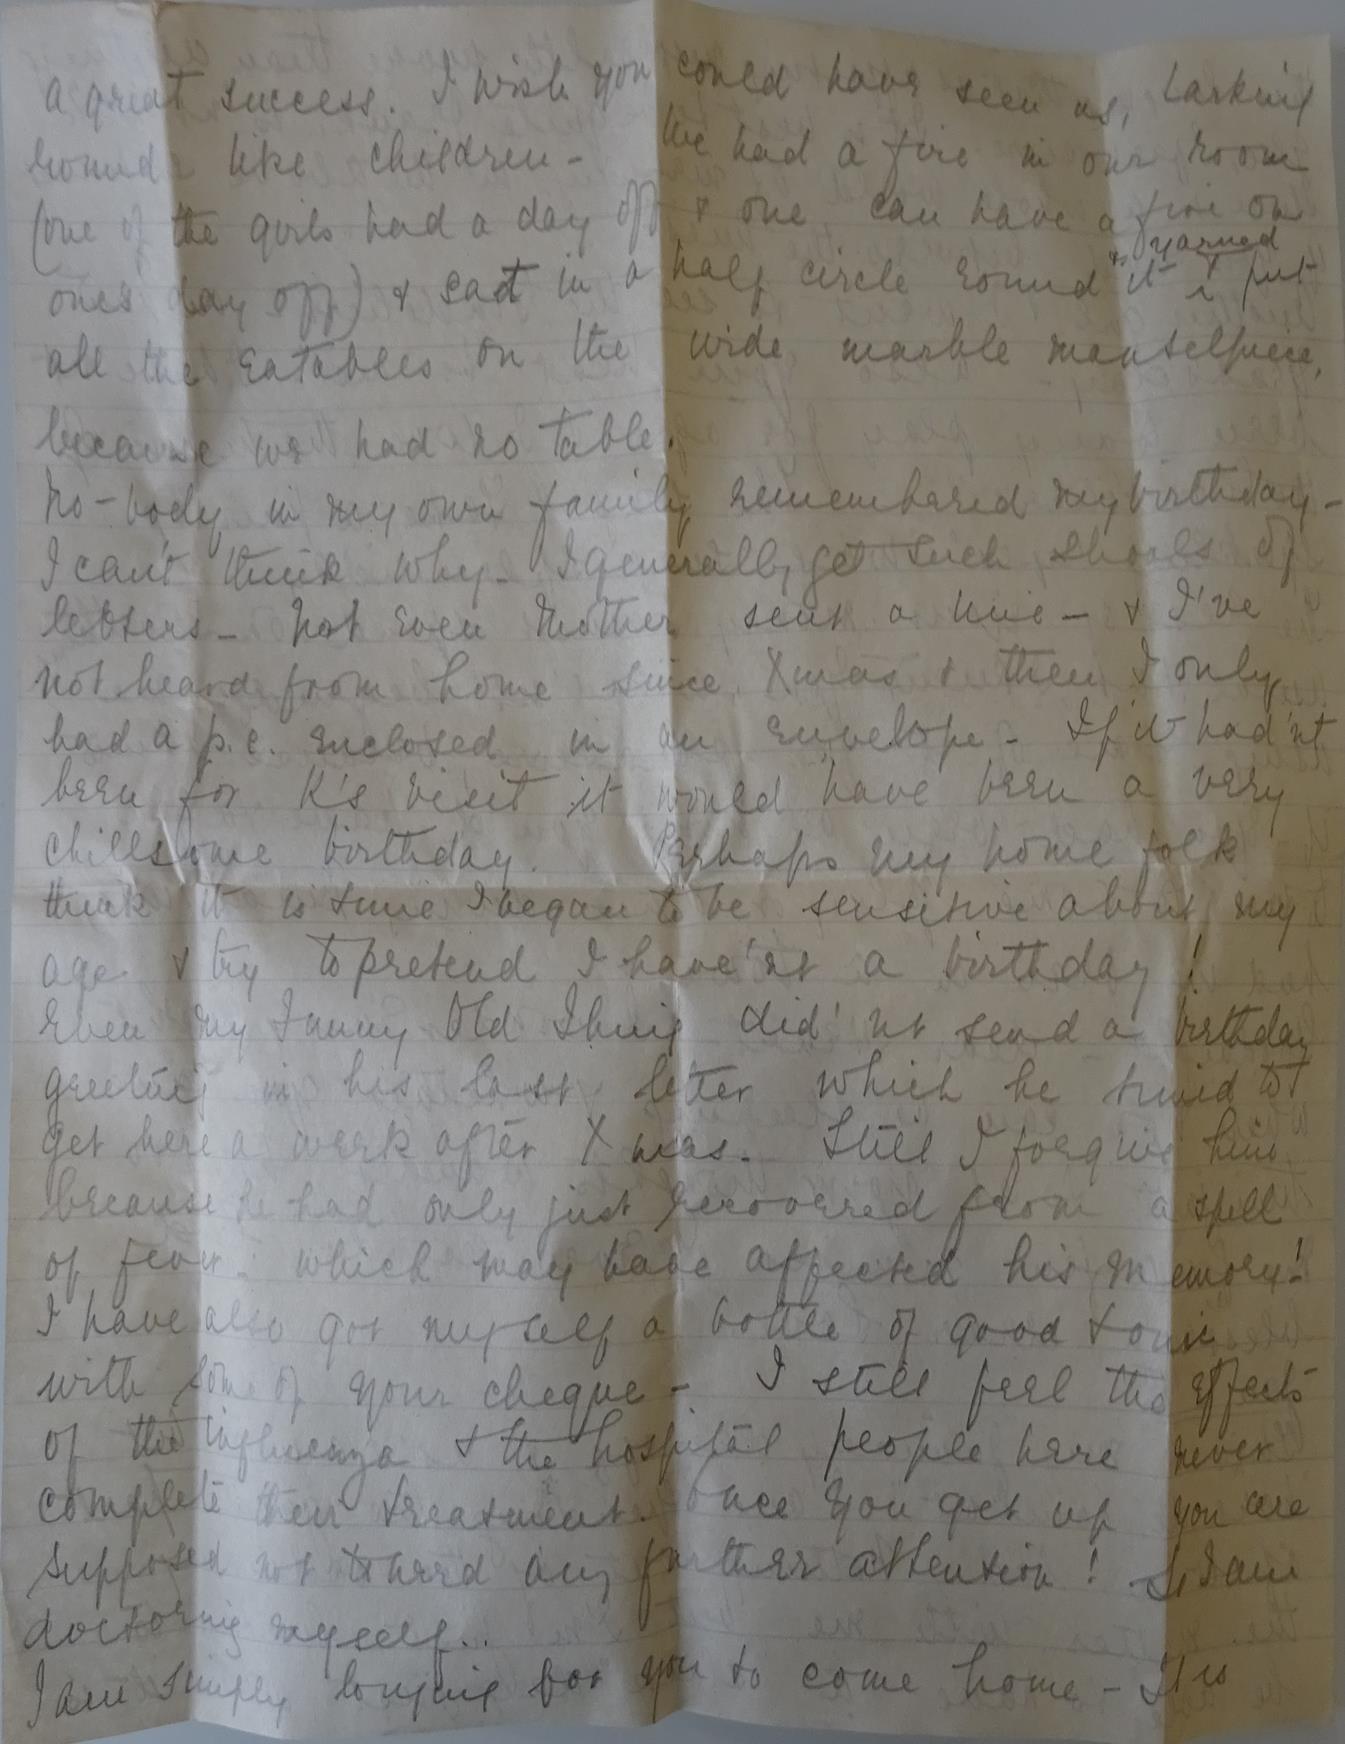 a great success. I wish you could have seen us, larking
round like children - We had a fire in our room
(one of the girls had a day off & one can have a fire on
ones day off) & sat in a half circle round it & yarned & put
all the eatables on the wide marble mantelpiece,
because we had no table.
No-body in my own family remembered my birthday -
I can't think why - I generally get such shoals of
letters - Not even Mother sent a line - & I've
not heard from home since Xmas & then I only
had a p.c. enclosed in an envelope - If it had'nt
been for K's visit it would have been a very
chillsome birthday. Perhaps my home folk
think it is time I began to be sensitive about my
age & try to pretend I have'nt a birthday!
Even my Funny Old Thing did'nt send a birthday
greeting in his last letter which he timed to
get here a week after Xmas. Still I forgive him
because he had only just recovered from a spell
of fever. which may have affected his memory!
I have also got myself a bottle of good tonic
with some of your cheque - I still feel the effects
of the influenza & the hospital people here never
complete their treatment. Once you get up you are
supposed not to need any further attention! So I am
doctoring myself..
I am simply longing for you to come home - It is